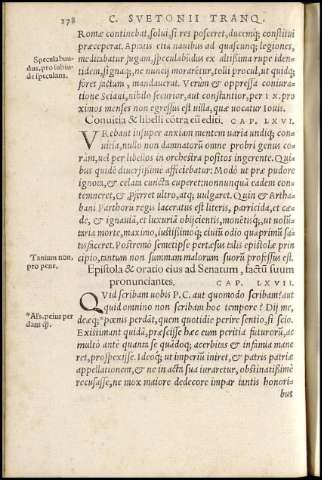 278 C. SVETONII TRANQ.
Romæ continebat, solui, si res posceret, ducemq; constitui
præceperat. Aptatis etiā nauibus ad quascunq; legiones,
meditabatur fugam, speculabūdus ex altissima rupe iden-
Speculabun-
dus, pro
de speculans.
tidem, signaq;, ne nuncij morarētur, tolli procul, ut quidq;
foret factum, mandauerat. Verùm & oppressa coniura-
tione Seiani, nihilo securior, aut constantior, per IX. pro
ximos menses non egressus est uilla, quæ uocatur Iouis.
Conuitia & libelli cōtra eū editi. CAP. LXVI.
VRebant insuper anxiam mentem uaria undiq; con-
uitia, nullo non damnatorū omne probri genus co-
ram, uel per libellos in orchestra positos ingerente. Qui-
bus quidē diuersissimè afficiebatur: Modò ut præ pudore
ignota, & celata cuncta cuperet: nonnunquā eadem con-
temneret, & pferret ultro, atq; uulgaret. Quin & Artha-
bani Parthorū regis laceratus est literis, parricidia, et cæ-
des, & ignauiā, et luxuriā obijcientis, monētisq;, ut uolū-
taria morte, maximo, iustissimoq; ciuiū odio quàprimū sa-
tisfaceret. Postremò semetipse pertæsus talis epistolæ prin
Tantum non,
pro penè.
cipio, tantum non summam malorum suorū professus est.
Epistola & oratio eius ad Senatum, factū suum
pronunciantes. CAP. LXVII.
QVid scribam uobis P. C. aut quomodo scribam? aut
quid omnino non scribam hoc tempore? Dij me,
*Als, peius per
dam q̃.
deæq; *pœnis perdāt, quem quotidie perire sentio, si scio.
Existimant quidā, præscisse hæc eum peritia futurorū, ac
multò antè quanta se quādoq; acerbitas & infamia mane
ret, prospexisse. Ideoq; ut imperiū inierit, & patris patriæ
appellationem, & ne in acta sua iuraretur, obstinatissimè
recusasse, ne mox maiore dedecore impar tantis honori
bus